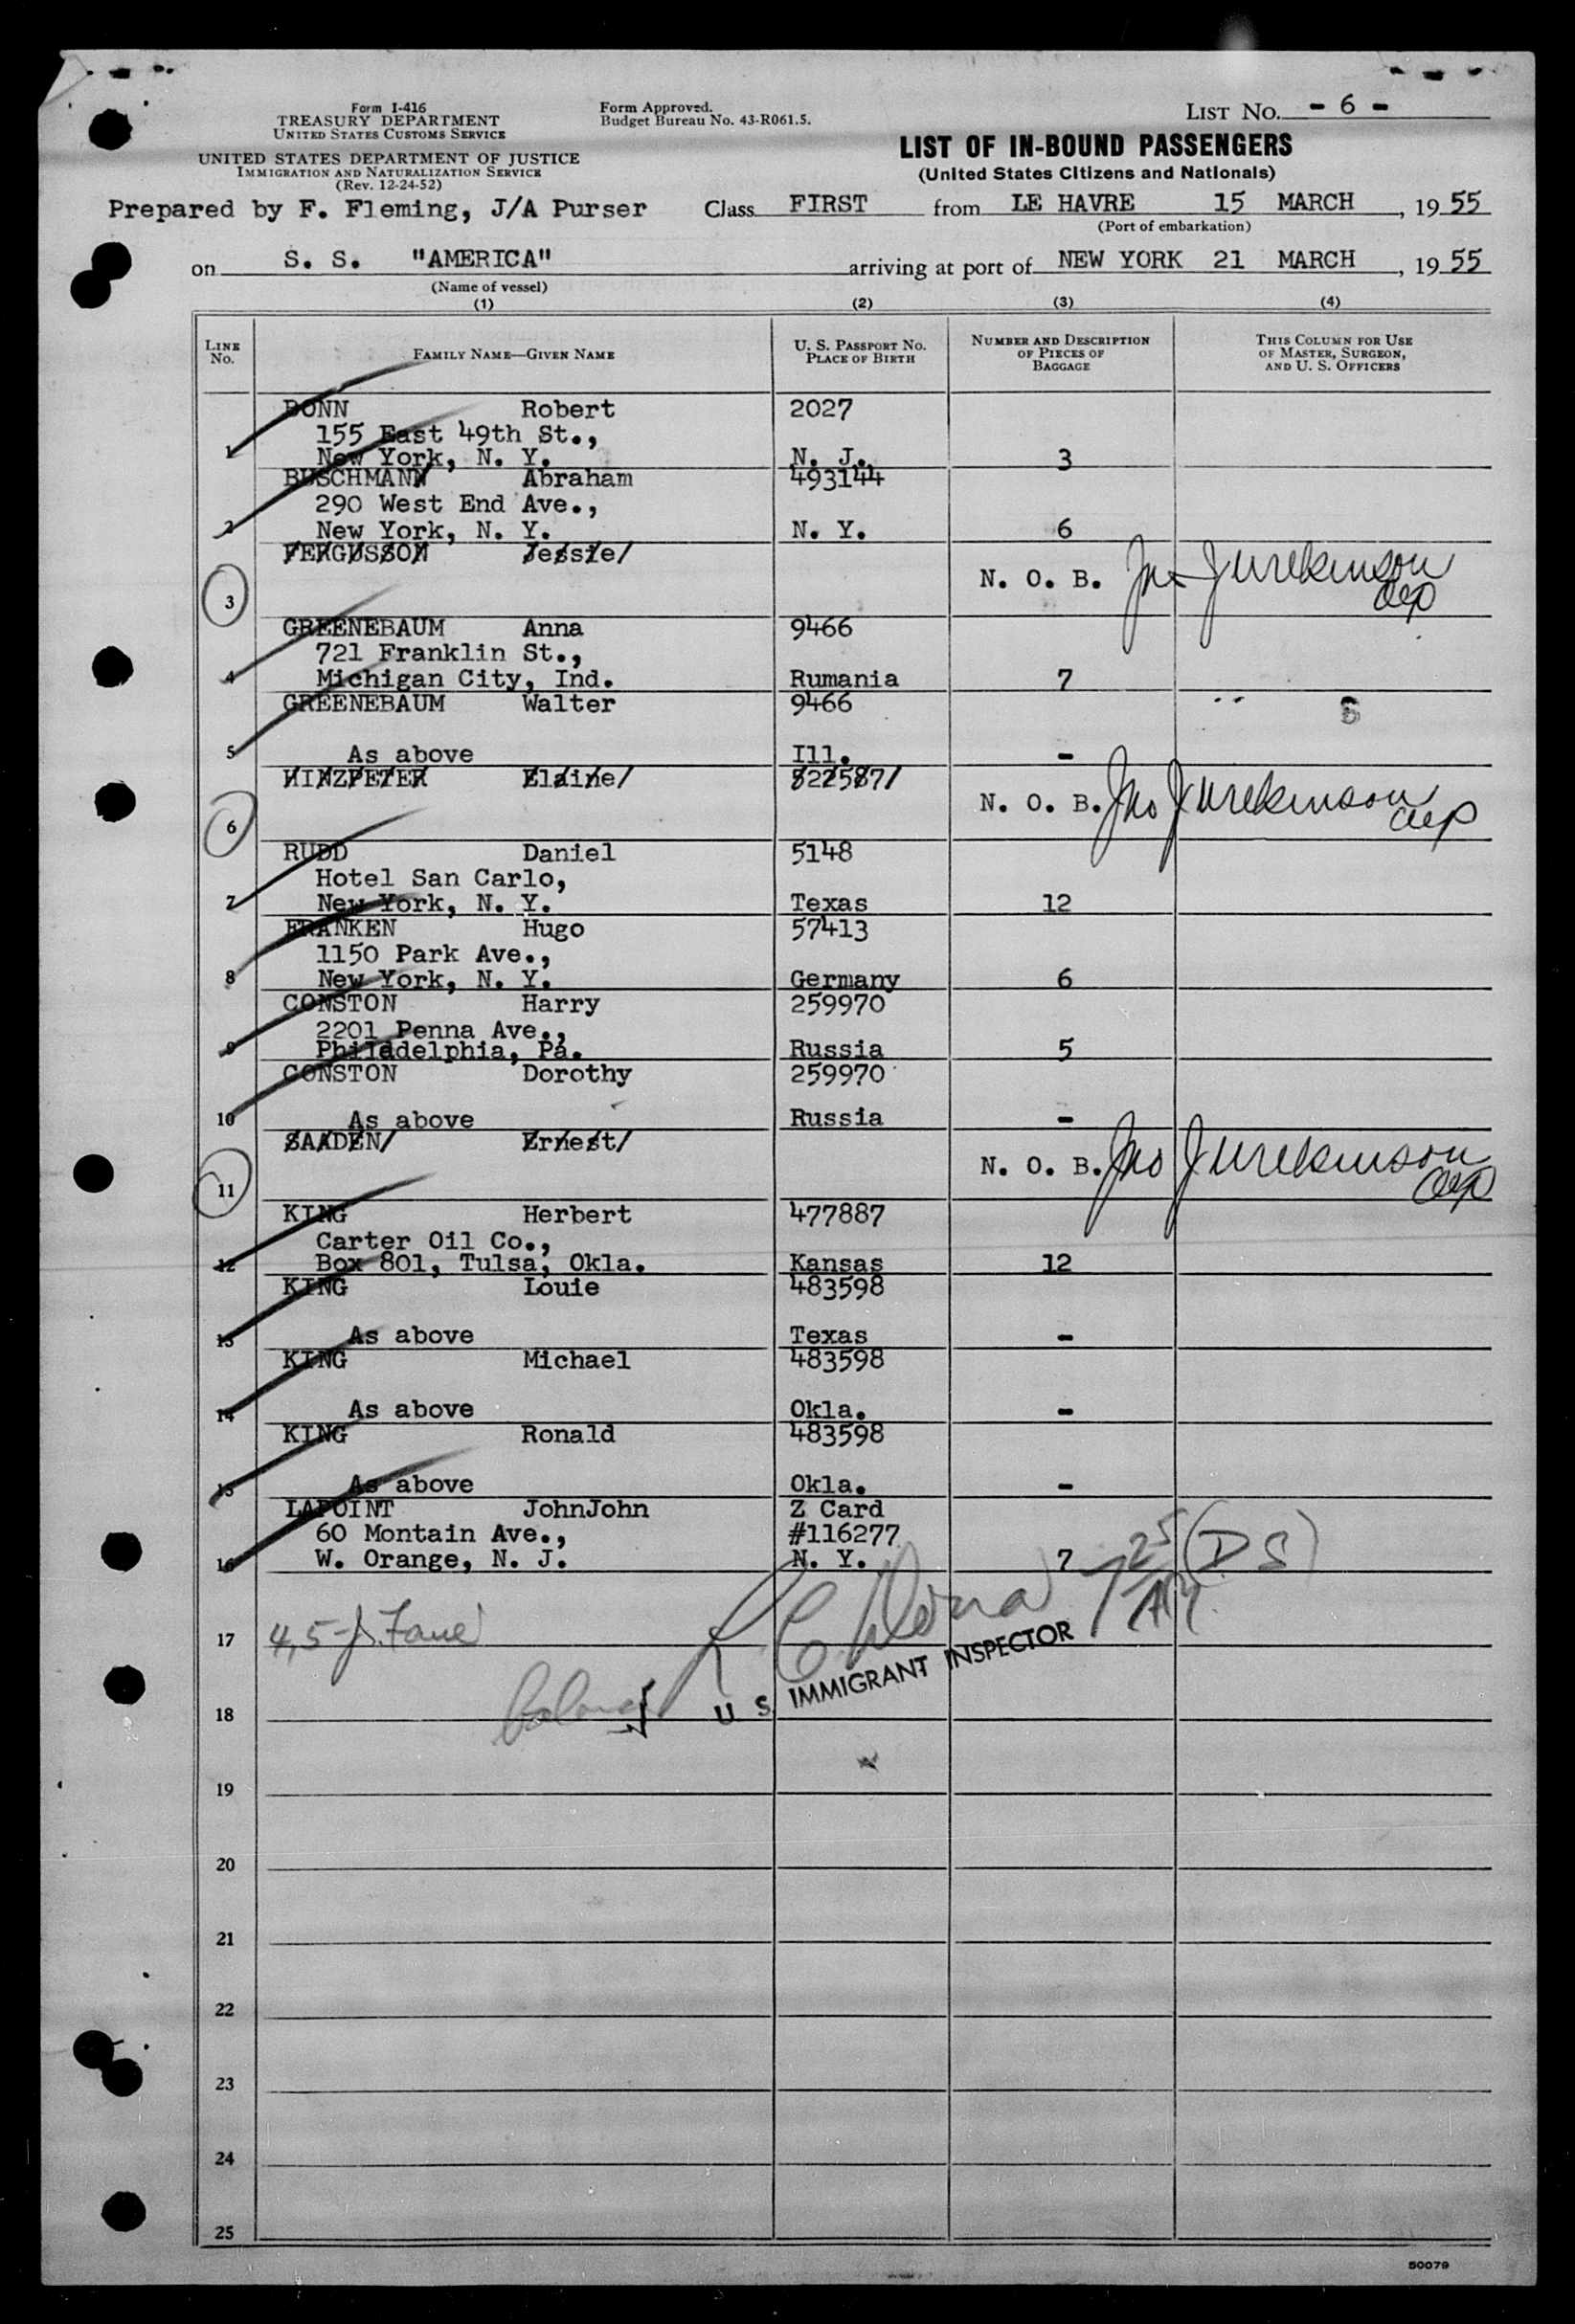 Form I-416
TREASURY DEPARTMENT
UNITED STATES CUSTOMS SERVICE
Form Approved.
Budget Bureau No. 43-R061.5.
LIST No. - 6 -
UNITED STATES DEPARTMENT OF JUSTICE
IMMIGRATION AND NATURALIZATION SERVICE
(Rev. 12-24-52)
LIST OF IN-BOUND PASSENGERS
(United States Citizens and Nationals)
Prepared by F. Fleming, J/A Purser Class FIRST from LE HAVRE 15 MARCH, 1955
(Port of embarkation)
on S. S. "AMERICA" arriving at port of NEW YORK 21 MARCH, 1955
(Name of vessel)
(1) (2) (3) (4)
LINE No. FAMILY NAME—GIVEN NAME U. S. PASSPORT NO. PLACE OF BIRTH NUMBER AND DESCRIPTION OF PIECES OF BAGGAGE THIS COLUMN FOR USE OF MASTER, SURGEON, AND U. S. OFFICERS
BONN Robert 2027
155 East 49th St.,
1 New York, N. Y. N. J. 3
BUSCHMANN Abraham 493144
290 West End Ave.,
2 New York, N. Y. N. Y. 6
FERGUSSON Jessie/
N. O. B.
3
GREENEBAUM Anna 9466
721 Franklin St.,
4 Michigan City, Ind. Rumania 7
GREENEBAUM Walter 9466
5 As above Ill. -
HINZPETER Elaine/ 822587/
N. O. B.
6
RUDD Daniel 5148
Hotel San Carlo,
7 New York, N. Y. Texas 12
FRANKEN Hugo 57413
1150 Park Ave.,
8 New York, N. Y. Germany 6
CONSTON Harry 259970
2201 Penna Ave.,
9 Philadelphia, Pa. Russia 5
CONSTON Dorothy 259970
10 As above Russia -
SAADEN/ Ernest/
N. O. B.
11
KING Herbert 477887
Carter Oil Co.,
12 Box 801, Tulsa, Okla. Kansas 12
KING Louie 483598
13 As above Texas -
KING Michael 483598
14 As above Okla. -
KING Ronald 483598
15 As above Okla. -
LAPOINT JohnJohn Z Card
60 Montain Ave., #116277
16 W. Orange, N. J. N. Y. 7
(DS)
17 4,5-
U S IMMIGRANT INSPECTOR
18
19
20
21
22
23
24
25
50079